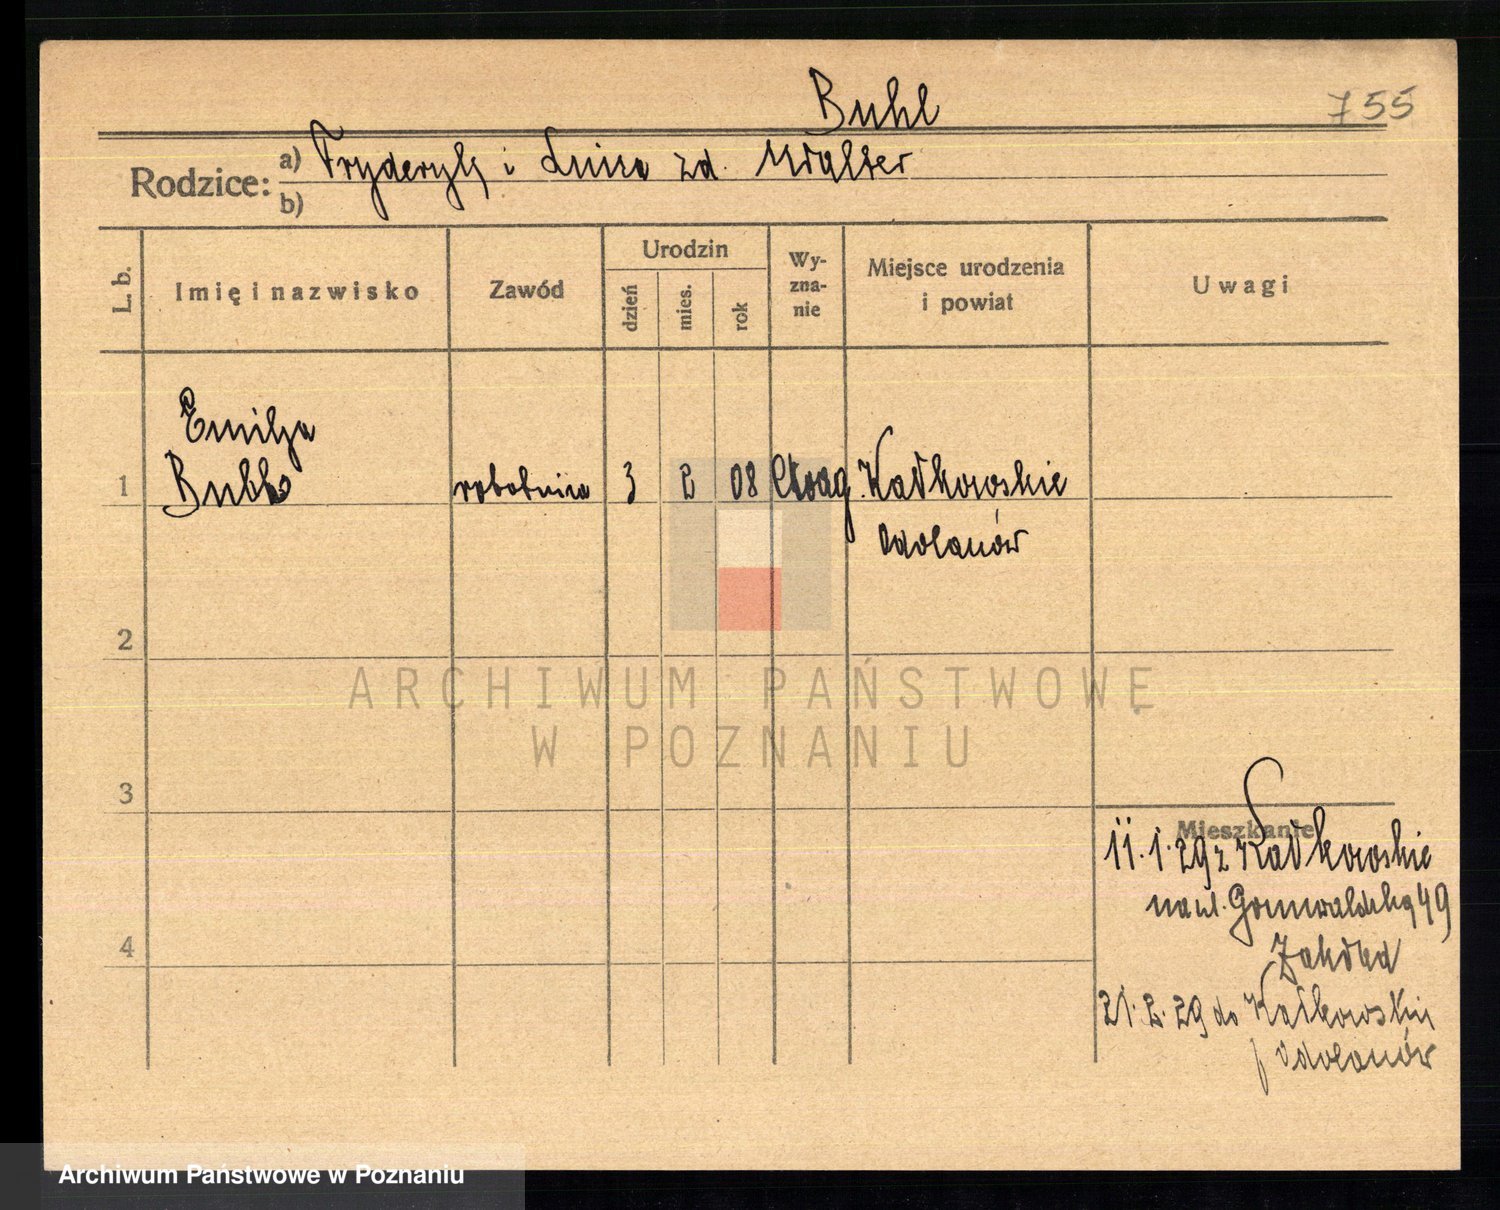 Buhl
755
Rodzice: a) Fryderyk i Luiza zd. Walter
b)
L. b.
Imię i nazwisko
Zawód
Urodzin
dzień
mies.
rok
Wy-
zna-
nie
Miejsce urodzenia
i powiat
Uwagi
Emilja
1 Buhl robotnica 3 2 08 Ewag. Kałkowskie
Odolanów
2
ARCHIWUM PAŃSTWOWE
W POZNANIU
3
Mieszkanie
11.1.29 z Kałkowskie
na ul. Grunwaldzką 49
Zakład
4
21.2.29 do Kałkowskie
p Odolanów
Archiwum Państwowe w Poznaniu